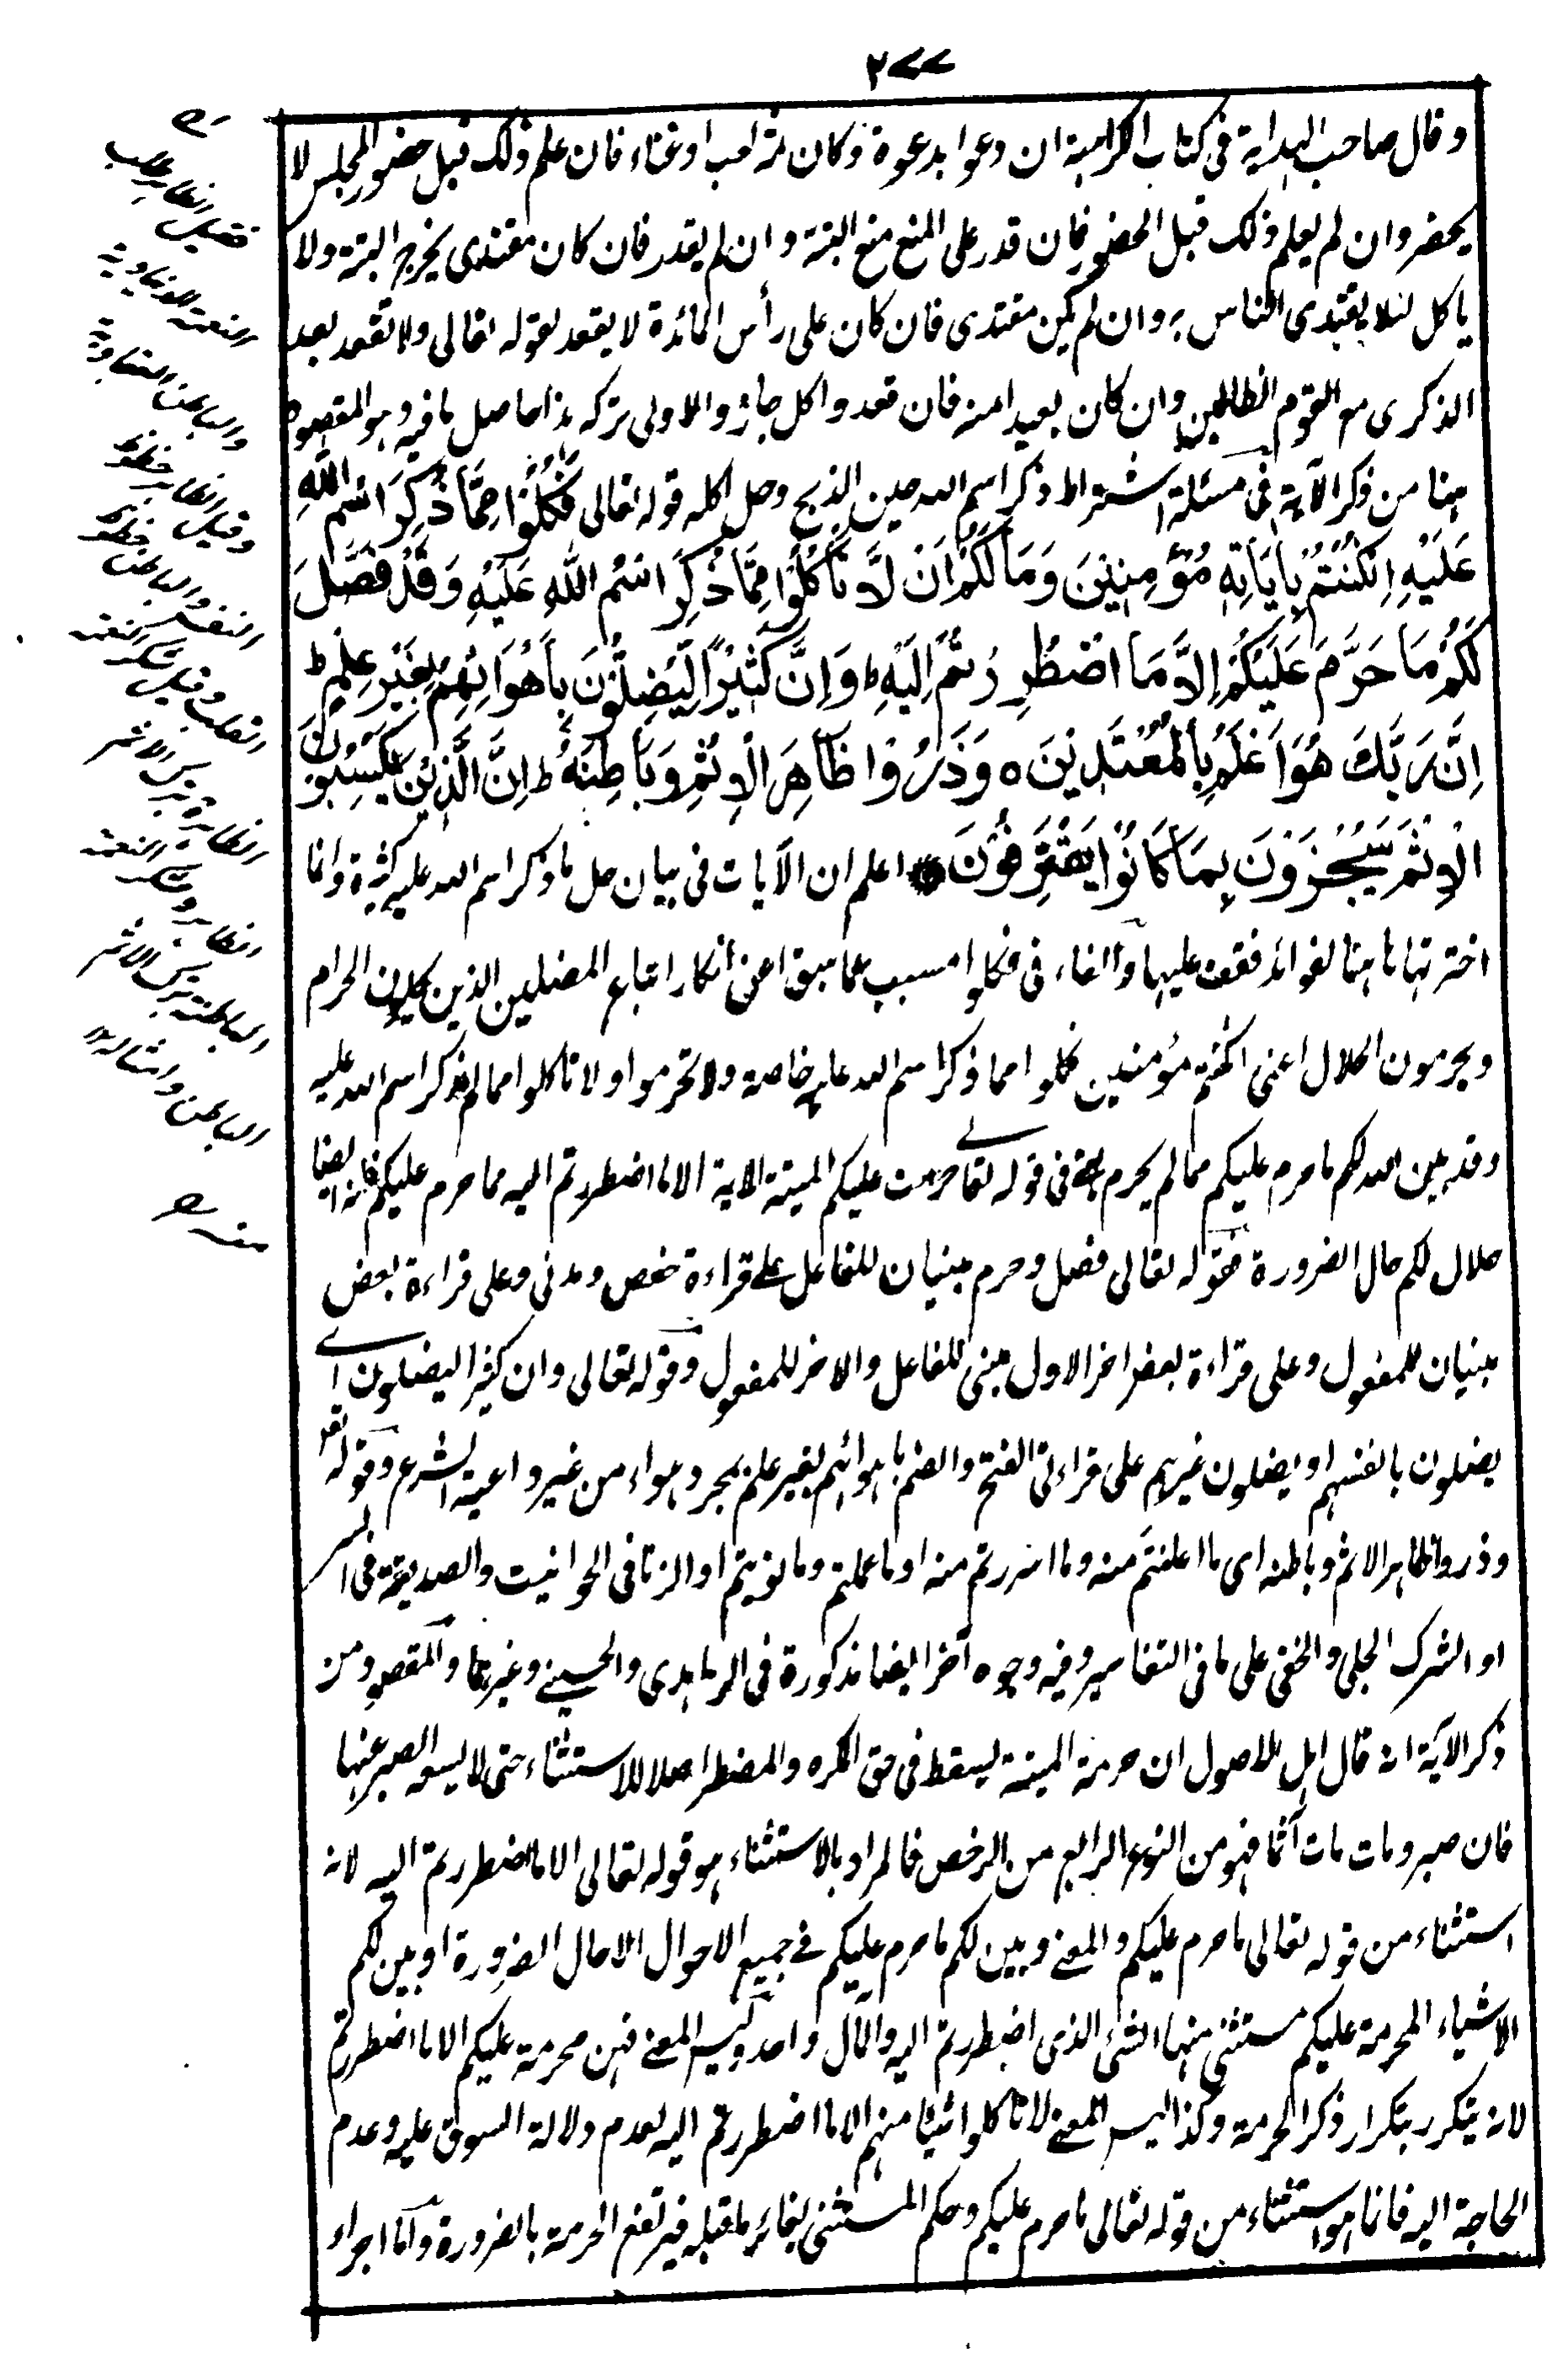 ٢٧٧
وقال صاحب الهداية فى كتاب الكراهية ان دعوا بدعوة وكان ثمه لعب او غناء فان علم ذلك قبل حضور المجلس لا
يحضر وان لم يعلم ذلك قبل الحضور فان قدر على المنع منع البتة وان لم يقدر فان كان مقتدى يخرج البتة ولا
ياكل لئلا يقتدى الناس به وان لم يكن مقتدى فان كان على رأس المائدة لا يقعد لقوله تعالى ولا تقعد بعد
الذكرى مع القوم الظالمين وان كان بعيدا منه فان قعد واكل جاز والاولى تركه هذا حاصل ما فيه وهو المقصود
هنا من ذكر الآية فى مسئلة اشتراط ذكر اسم الله حين الذبح وحل اكله قوله تعالى فَكُلُوْا مِمَّا ذُكِرَ اسْمُ اللّٰهِ
عَلَيْهِ اِنْ كُنْتُمْ بِاٰيَاتِهٖ مُؤْمِنِيْنَ وَمَا لَكُمْ اَنْ لَّا تَأْكُلُوْا مِمَّا ذُكِرَ اسْمُ اللّٰهِ عَلَيْهِ وَقَدْ فَصَّلَ
لَكُمْ مَا حَرَّمَ عَلَيْكُمْ اِلَّا مَا اضْطُرِرْتُمْ اِلَيْهِ ط وَاِنَّ كَثِيْرًا لَّيُضِلُّوْنَ بِاَهْوَائِهِمْ بِغَيْرِ عِلْمٍ ط
اِنَّ رَبَّكَ هُوَ اَعْلَمُ بِالْمُعْتَدِيْنَ ه وَذَرُوْا ظَاهِرَ الْاِثْمِ وَبَاطِنَهٗ ط اِنَّ الَّذِيْنَ يَكْسِبُوْنَ
الْاِثْمَ سَيُجْزَوْنَ بِمَا كَانُوْا يَقْتَرِفُوْنَ اعلم ان الآيات فى بيان حل ما ذكر اسم الله عليه كثيرة وانما
اخترتها هاهنا لفوائد فقف عليها والفاء فى فكلوا مسبب عما سبق اعنى انكار اتباع المضلين الذين يحلون الحرام
ويحرمون الحلال اعنى ان كنتم مؤمنين فكلوا مما ذكر اسم الله عليه خاصة ولا تحرموا ولا تاكلوا مما لم يذكر اسم الله عليه
وقد بين الله لكم ما حرم عليكم مما لم يحرم فى قوله تعا حرمت عليكم الميتة الاية الا ما اضطررتم اليه مما حرم عليكم فانه ايضا
حلال لكم حال الضرورة فقوله تعالى فصل وحرم مبنيان للفاعل على قراءة حفص ومدنى وعلى قراءة بعض
مبنيان للمفعول وعلى قراءة بعض اخر الاول مبنى للفاعل والاخر للمفعول وقوله تعالى وان كثيرا ليضلون اے
يضلون بانفسهم او يضلون غيرهم على قراءتى الفتح والضم باهوائهم بغير علم بمجرد هواء من غير داعية الشرع وقوله تعا
وذروا ظاهر الاثم وباطنه اى ما اعلنتم منه وما اسررتم منه او ما عملتم وما نويتم او الزنا فى الحوانيت والصديقة فى السر
او الشرك الجلى والخفى على ما فى التفاسير وفيه وجوه اخر ايضا مذكورة فى الزاهدى والحسينے وغيرهما والمقصود من
ذكر الآية انه قال اهل الاصول ان حرمة الميتة ليسقط فى حق المكره والمضطر اصلا للاستثناء حتى لا يسعه الصبر عنها
فان صبر ومات مات آثما فهو من النوع الرابع من الرخص فالمراد بالاستثناء هو قوله تعالى الا ما اضطررتم اليه لانه
استثناء من قوله تعالى ما حرم عليكم والمعنے وبين لكم ما حرم عليكم فے جميع الاحوال الا حال الضرورة او بين لكم
الاشياء المحرمة عليكم مستثنى منها الشئ الذى اضطررتم اليه والمآل واحد وليس المعنے فهن محرمة عليكم الا ما اضطررتم
لانه يتكرر بتكرار ذكر الحرمة وكذا ليس المعنے لا تاكلوا شيئا منهم الا ما اضطررتم اليه لعدم دلالة السوق عليه وعدم
الحاجة اليه فانما هو استثناء من قوله تعالى ما حرم عليكم وحكم المستثنى يغائر ما قبله فيرتفع الحرمة بالضرورة واما اجراء
فقيل الظاهر طلب
النعمة الدنياوية
والباطن
وقيل الظاهر حظوظ
النفس والباطن حظوظ
القلب وقيل شكر النعمة
الظاهرة ترك الاثم
الظاهر وشكر النعمة
الباطنة ترك الاثم
الباطن وامثاله ١٢
منه